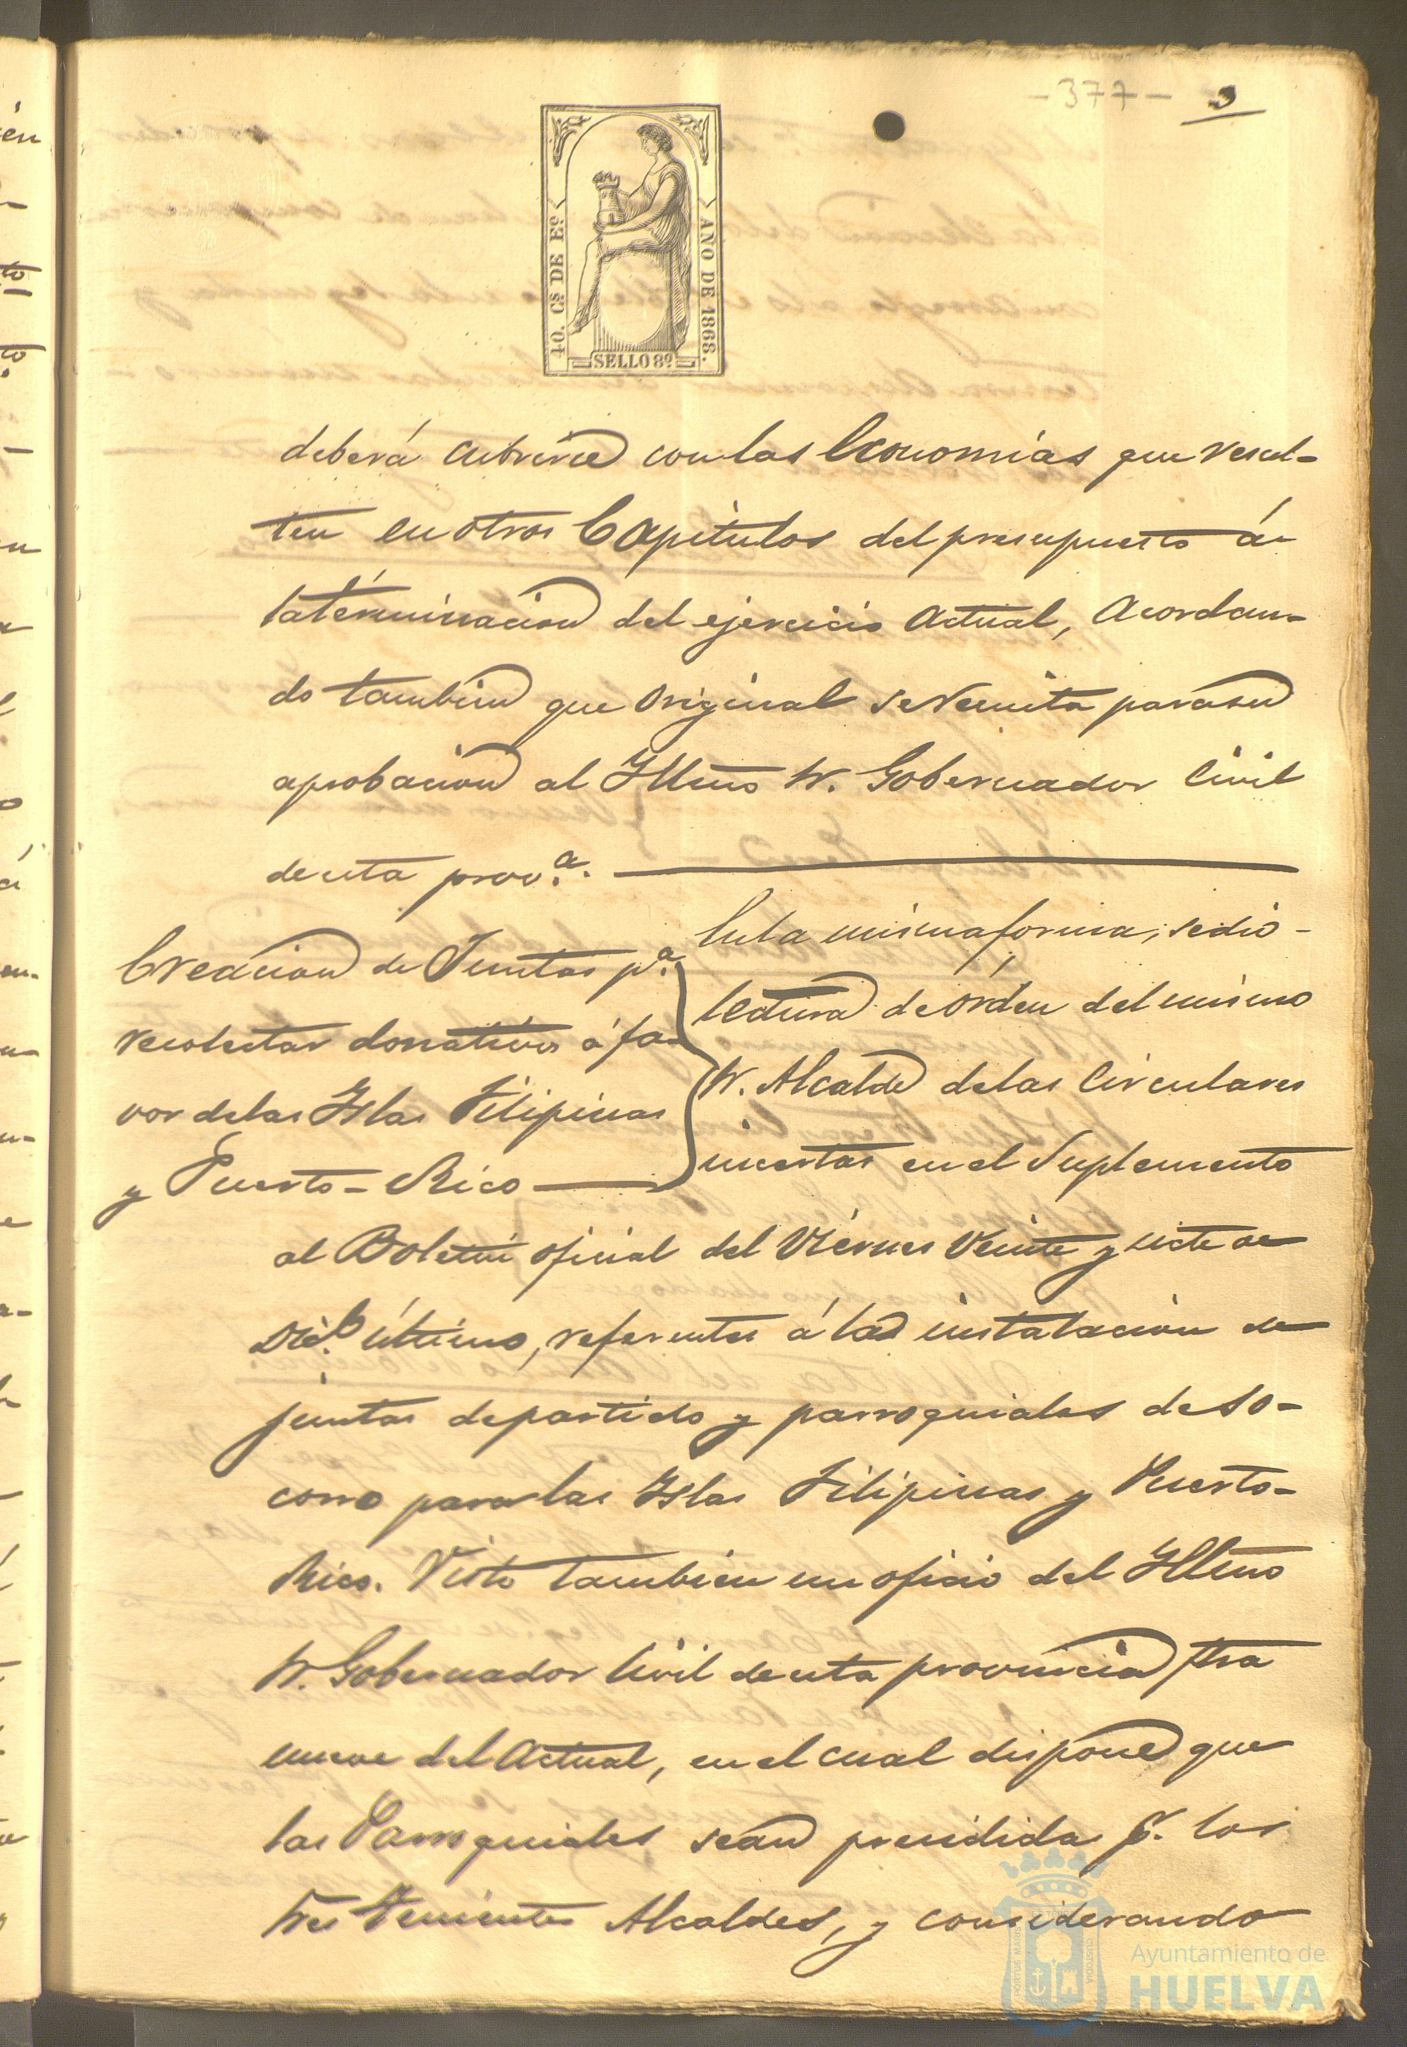 - 377 - 3
40. Cs DE Eo.
AÑO DE 1868.
SELLO 8º
deberá cubrirse con las Economías que resul-
ten en otros Capítulos del presupuesto á
la términacion del ejercicio actual, acordan-
do tambien que original se remita para su
aprobacion al Illmo Sr. Gobernador Civil
de esta prov.a
Creacion de Juntas pa.
recolectar donativos á fa-
vor de las Islas Filipinas
y Puerto-Rico
En la misma forma, se dio
lectura de órden del mismo
Sr. Alcalde de las Circulares
insertas en el Suplemento
al Boletin oficial del Viernes Veinte y siete de
Dice último, referentes á la instalacion de
juntas de partido y parroquiales de so-
corro para las Islas Filipinas y Puerto-
Rico. Visto tambien un oficio del Illmo
Sr. Gobernador Civil de esta provincia fha
nueve del actual, en el cual dispone que
las Parroquiales sean presidida p. los
tres Tenientes Alcaldes, y considerando
Ayuntamiento de
HUELVA